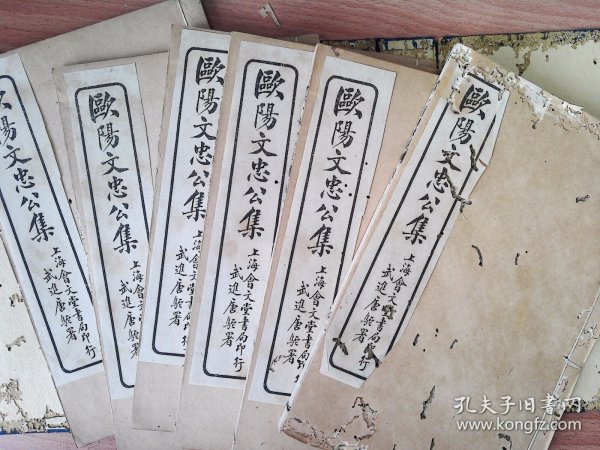 歐陽文忠公集
上海會文堂書局印行
武進唐駝署
歐陽文忠公集
上海會文堂書局印行
武進唐駝署
歐陽文忠公集
上海會文堂書局印行
武進唐駝署
歐陽文忠公集
上海會文堂書局印行
武進唐駝署
歐陽文忠公集
上海會文堂書局印行
武進唐駝署
歐陽文忠公集
上海會文堂書局印行
武進唐駝署
孔夫子旧書网
www.kongfz.com